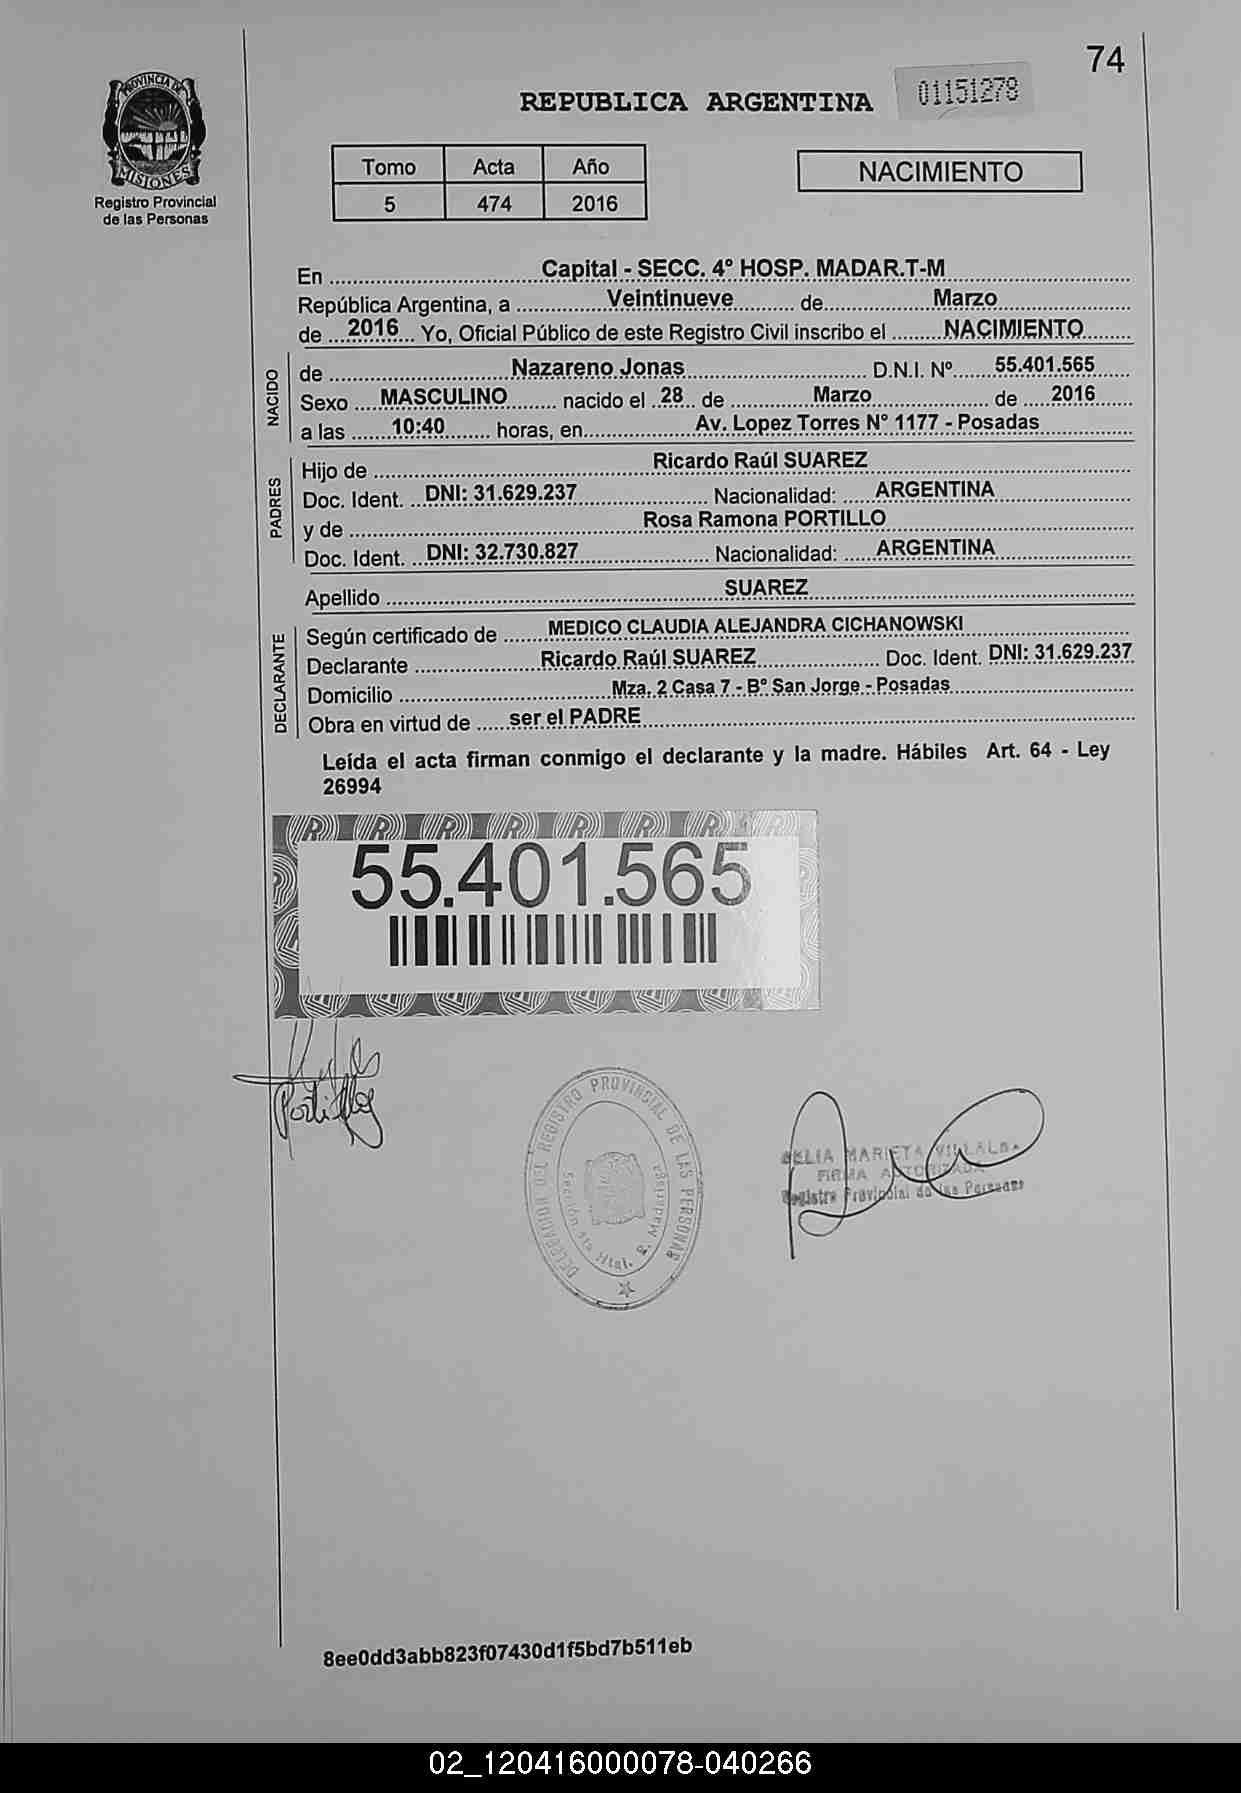 74
PROVINCIA DE
MISIONES
Registro Provincial
de las Personas
REPUBLICA ARGENTINA
01151278
Tomo Acta Año
5 474 2016
NACIMIENTO
En Capital - SECC. 4° HOSP. MADAR.T-M
República Argentina, a Veintinueve de Marzo
de 2016 Yo, Oficial Público de este Registro Civil inscribo el NACIMIENTO
NACIDO
de Nazareno Jonas D.N.I. Nº 55.401.565
Sexo MASCULINO nacido el 28 de Marzo de 2016
a las 10:40 horas, en Av. Lopez Torres N° 1177 - Posadas
PADRES
Hijo de Ricardo Raúl SUAREZ
Doc. Ident. DNI: 31.629.237 Nacionalidad: ARGENTINA
y de Rosa Ramona PORTILLO
Doc. Ident. DNI: 32.730.827 Nacionalidad: ARGENTINA
Apellido SUAREZ
DECLARANTE
Según certificado de MEDICO CLAUDIA ALEJANDRA CICHANOWSKI
Declarante Ricardo Raúl SUAREZ Doc. Ident. DNI: 31.629.237
Domicilio Mza. 2 Casa 7 - B° San Jorge - Posadas
Obra en virtud de ser el PADRE
Leída el acta firman conmigo el declarante y la madre. Hábiles Art. 64 - Ley
26994
55.401.565
DELEGACION DEL REGISTRO PROVINCIAL DE LAS PERSONAS
Sección 4ta Htal. R. Madariaga
MARIETA VILLALBA
FIRMA AUTORIZADA
Registro Provincial de las Personas
8ee0dd3abb823f07430d1f5bd7b511eb
02_120416000078-040266